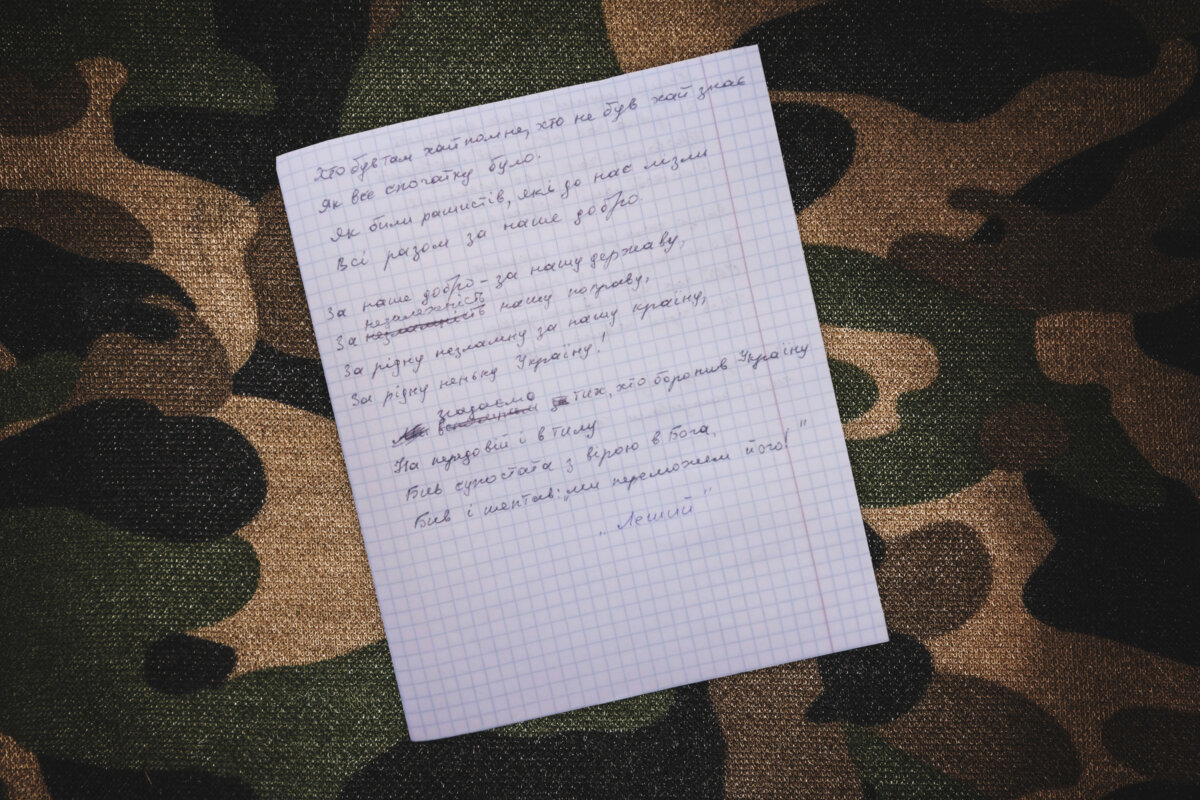 Хто був там хай помне, хто не був хай знає
Як все спочатку було.
Як били рашистів, які до нас лізли
Всі разом за наше добро.
За наше добро – за нашу державу,
За незалежність нашу поправу,
За рідну незламну за нашу країну,
За рідну неньку Україну!
згадаємо тих, хто боронив Україну
На передовій і в тилу
Бив супостата з вірою в Бога,
Бив і шептав: „ми переможем його!"
„Леший"